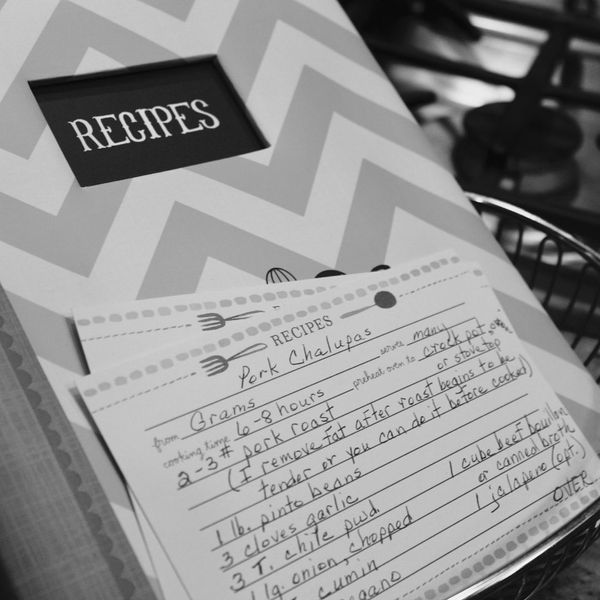 RECIPES
RECIPES
Pork Chalupas
serves many
from Grams
preheat oven to crock pot or
cooking time 6-8 hours or stove top
2-3# pork roast
(I remove fat after roast begins to be
tender or you can do it before cooked)
1 lb. pinto beans
3 cloves garlic 1 cube beef bouillon
3 T. chile pwd. or canned broth
1 lg. onion, chopped 1 jalapeno (opt.)
cumin OVER